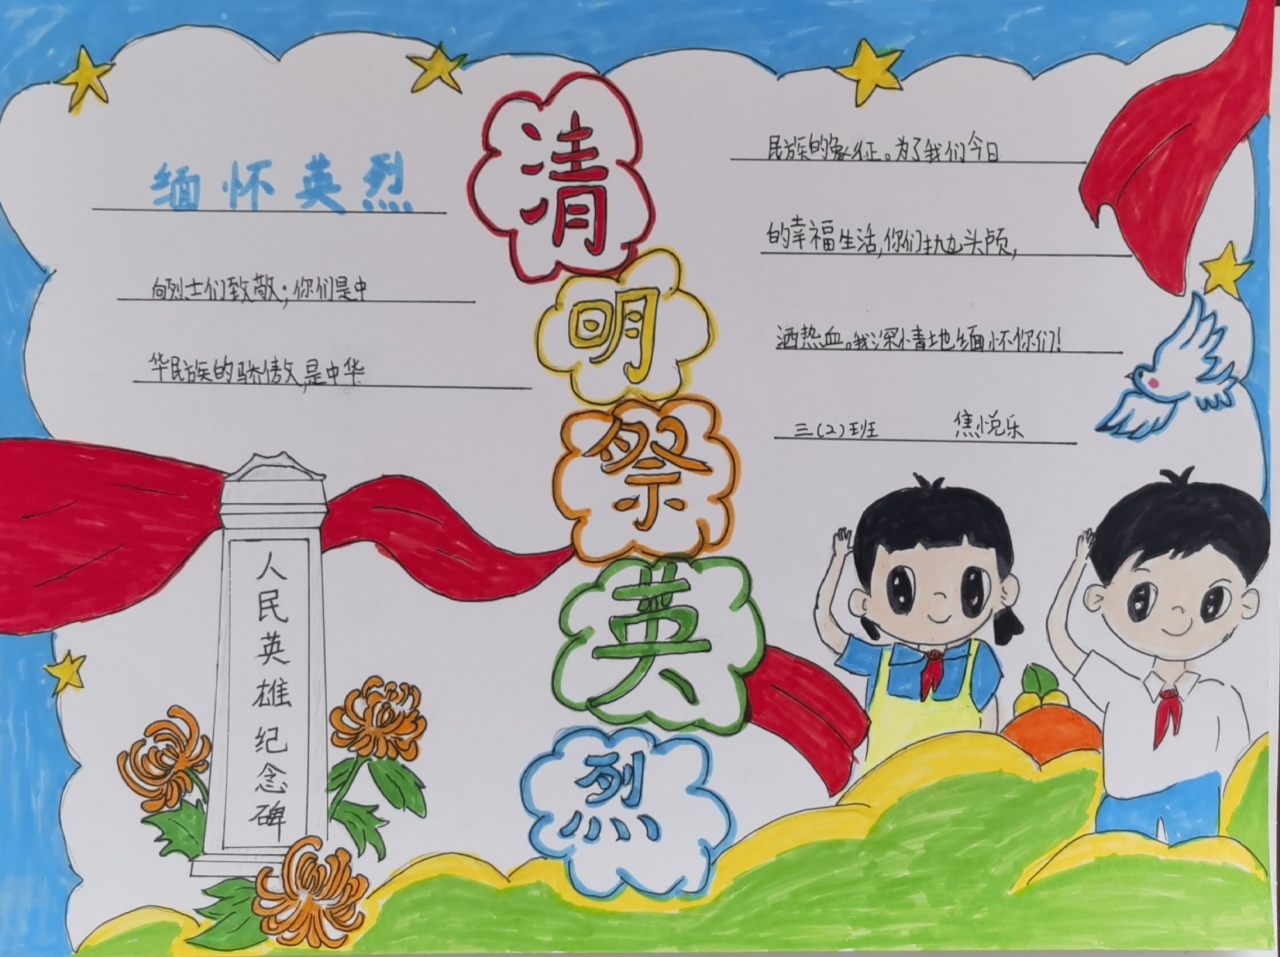 清明祭英烈
缅怀英烈
向烈士们致敬;你们是中
华民族的骄傲,是中华
民族的象征。为了我们今日
的幸福生活,你们抛头颅,
洒热血。我深情地缅怀你们!
三(2)班 焦悦乐
人民英雄纪念碑